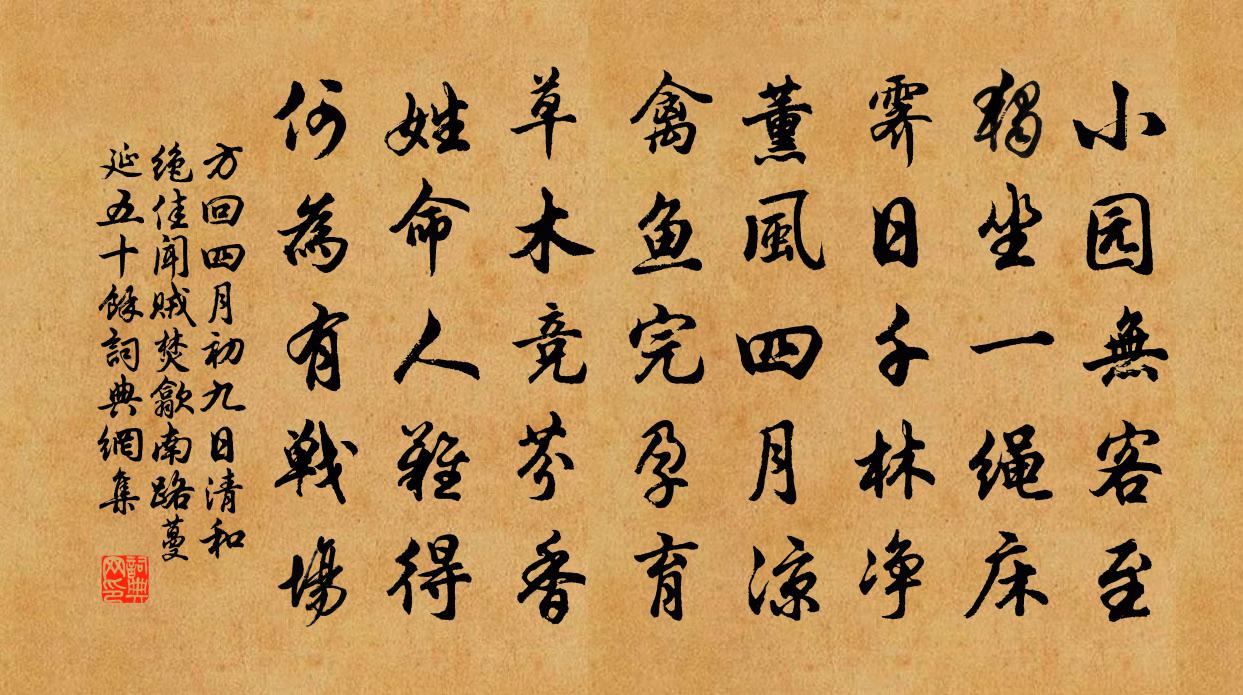 小园無客至
獨坐一绳床
霁日千林净
薰風四月凉
禽鱼完孕育
草木竞芬香
姓命人難得
何為有戰場
方回四月初九日清和
绝佳闻贼焚歙南路蔓
延五十餘詞典網集
詞典
网印